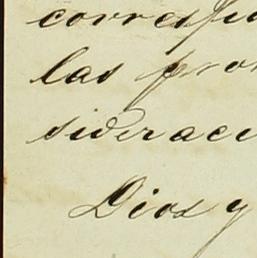 corresp
las pro
siderac
Dios y